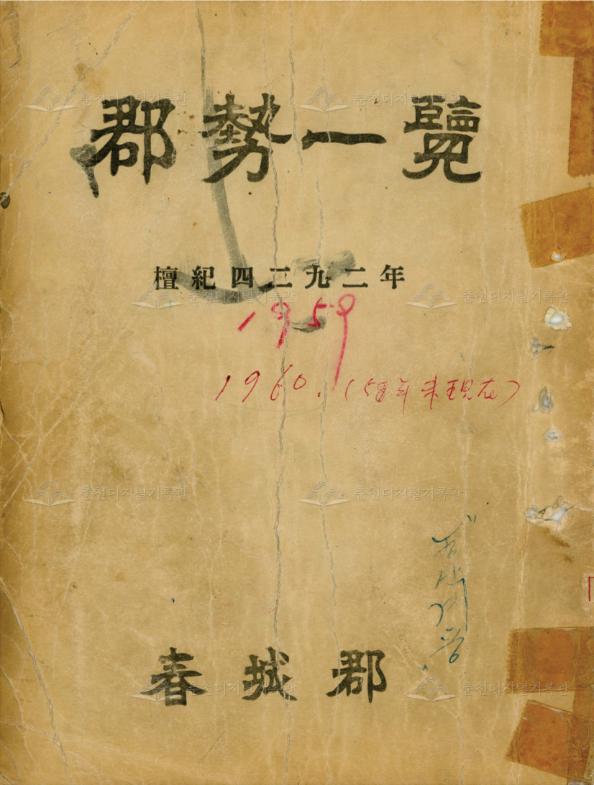 郡勢一覽
檀紀四二九二年
1959
1960. (58年末現在)
春城郡
춘천디지털기록관